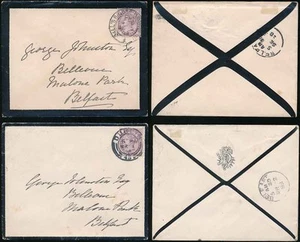 George Johnston Esq
Bellevue
Malone Park
Belfast
George Johnston Esq
Bellevue
Malone Park
Belfast